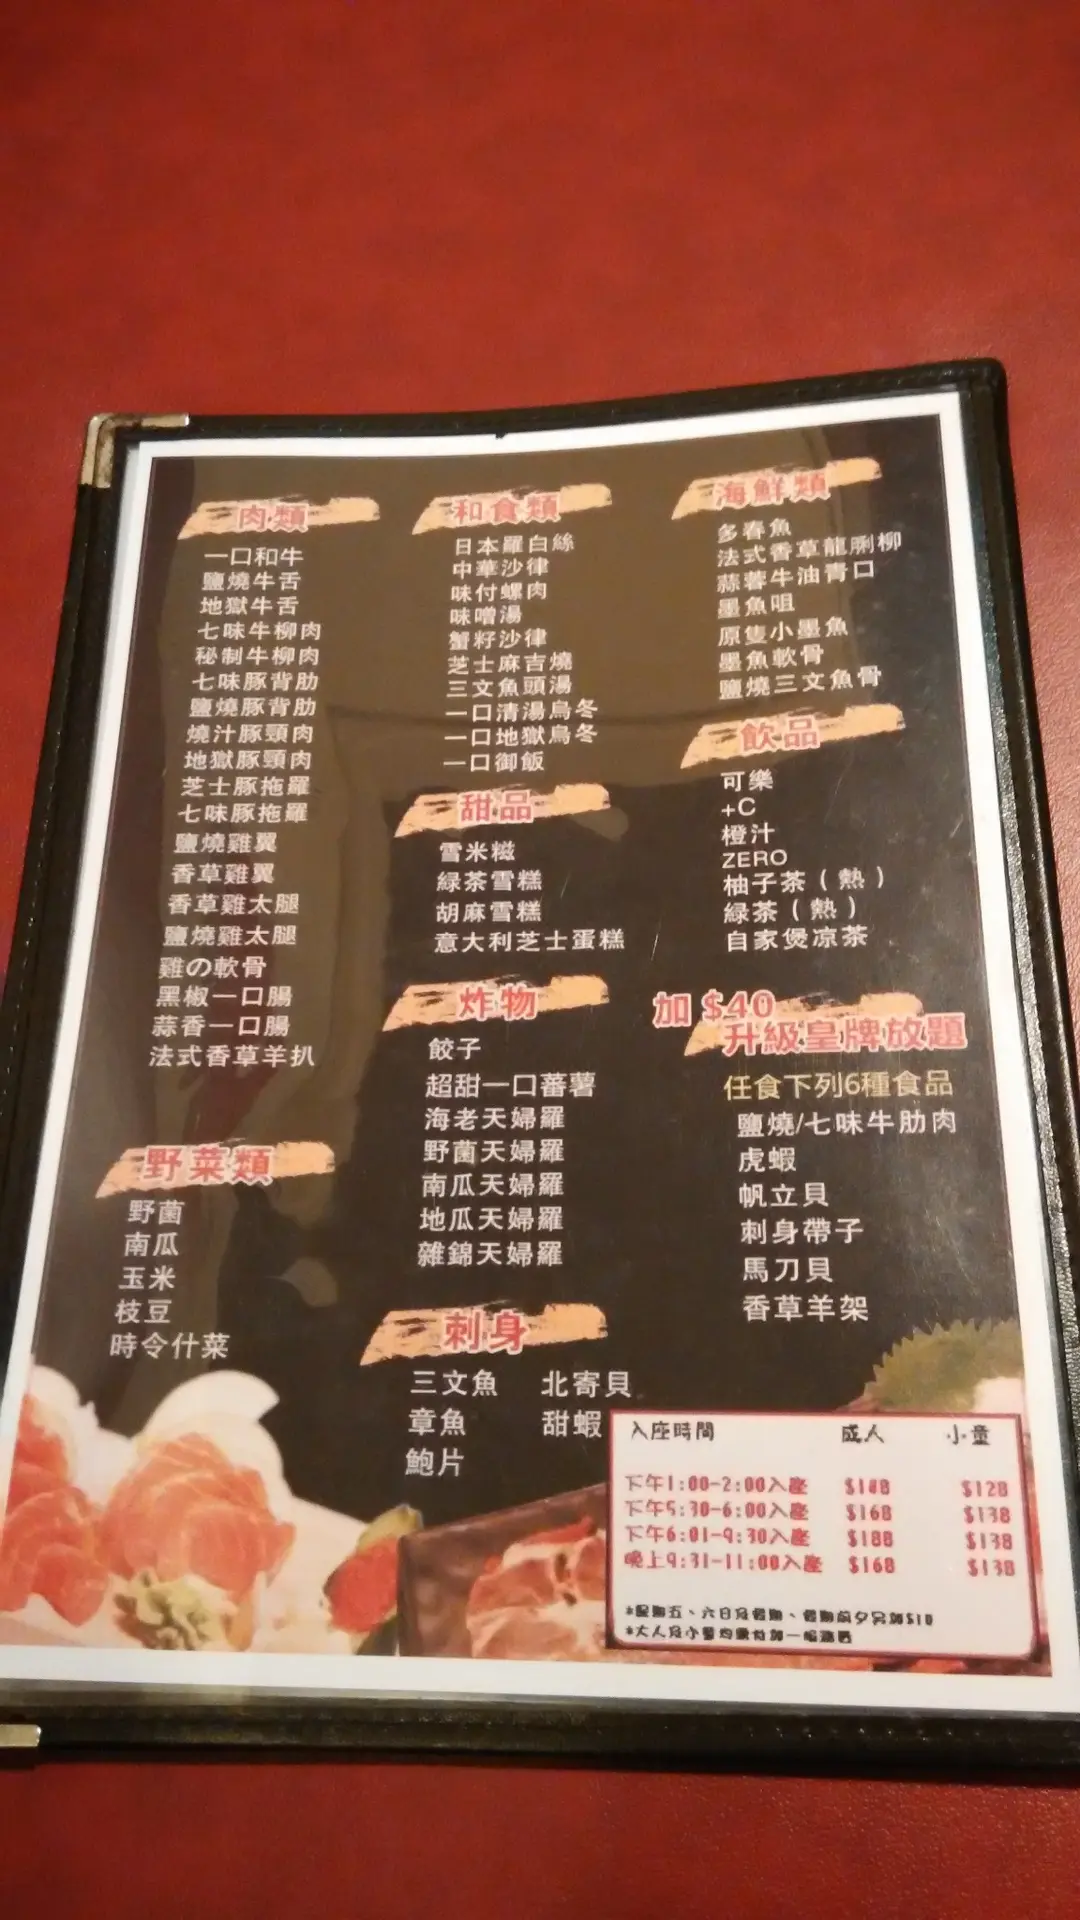 肉類
一口和牛
鹽燒牛舌
地獄牛舌
七味牛柳肉
秘制牛柳肉
七味豚背肋
鹽燒豚背肋
燒汁豚頸肉
地獄豚頸肉
芝士豚拖羅
七味豚拖羅
鹽燒雞翼
香草雞翼
香草雞太腿
鹽燒雞太腿
雞の軟骨
黑椒一口腸
蒜香一口腸
法式香草羊扒
野菜類
野菌
南瓜
玉米
枝豆
時令什菜
和食類
日本羅白絲
中華沙律
味付螺肉
味噌湯
蟹籽沙律
芝士麻吉燒
三文魚頭湯
一口清湯烏冬
一口地獄烏冬
一口御飯
甜品
雪米糍
緑茶雪糕
胡麻雪糕
意大利芝士蛋糕
炸物
餃子
超甜一口蕃薯
海老天婦羅
野菌天婦羅
南瓜天婦羅
地瓜天婦羅
雜錦天婦羅
刺身
三文魚 北寄貝
章魚 甜蝦
鮑片
海鮮類
多春魚
法式香草龍脷柳
蒜蓉牛油青口
墨魚咀
原隻小墨魚
墨魚軟骨
鹽燒三文魚骨
飲品
可樂
+C
橙汁
ZERO
柚子茶（熱）
緑茶（熱）
自家煲凉茶
加 $40
升級皇牌放題
任食下列6種食品
鹽燒/七味牛肋肉
虎蝦
帆立貝
刺身帶子
馬刀貝
香草羊架
入座時間 成人 小童
下午1:00-2:00入座 $128
下午5:30-6:00入座 $168 $138
下午6:01-9:30入座 $188 $138
晚上9:31-11:00入座 $168 $138
*星期五、六日及假期、假期前夕另加$10
*大人及小童均需付加一服務費